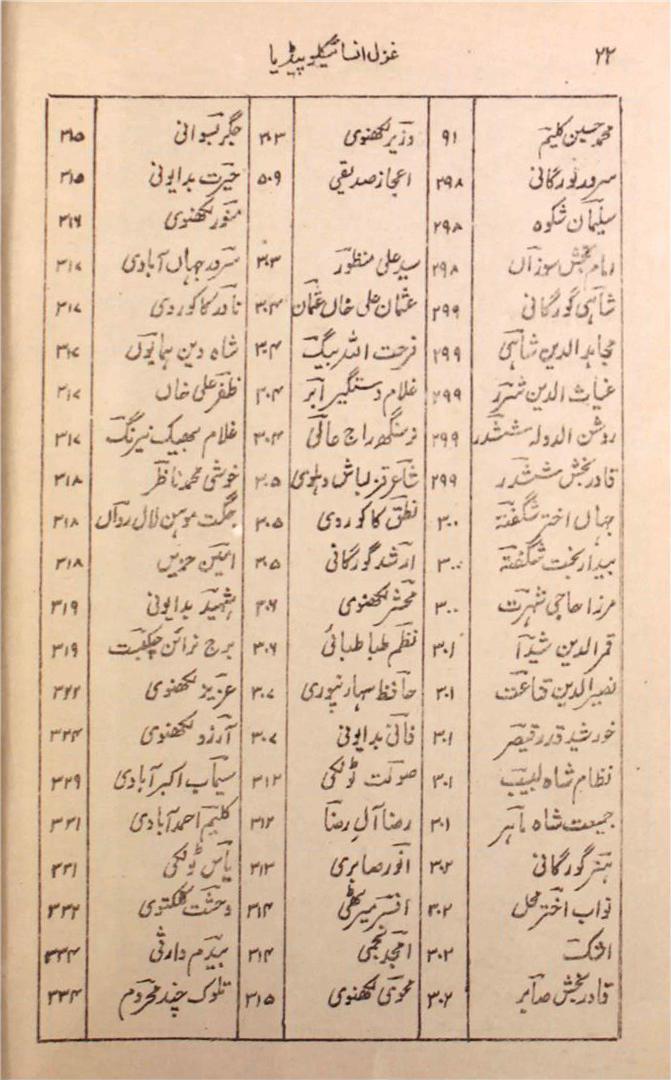 ۲۲ غزل انسائیکلوپیڈیا
محمد حسین کلیم ۹۱ وزیر لکھنوی ۳۰۳ جگر بسوانی ۳۱۵
سرور گورگانی ۲۹۸ اعجاز صدیقی ۵۰۹ حیرت بدایونی ۳۱۵
سلیمان شکوہ ۲۹۸ منور لکھنوی ۳۱۶
امام بخش سوزاں ۲۹۸ سید علی منظور ۳۰۳ سرور جہاں آبادی ۳۱۷
شاہی گورگانی ۲۹۹ عثمان علی خاں عثمان ۳۰۴ نادر کاکوروی ۳۱۷
مجاہد الدین شاہی ۲۹۹ فرحت اللہ بیگ ۳۰۴ شاہ دین ہمایوں ۳۱۷
غیاث الدین شرر ۲۹۹ غلام دستگیر ابر ۳۰۴ ظفر علی خاں ۳۱۷
روشن الدولہ ششدر ۲۹۹ نرسنگھ راج عالی ۳۰۴ غلام بھیک نیرنگ ۳۱۷
قادر بخش ششدر ۲۹۹ شاعر قزلباش دہلوی ۳۰۵ خوشی محمد ناظر ۳۱۸
جہاں اختر شگفتہ ۳۰۰ نطق کاکوروی ۳۰۵ جگت موہن لال رواں ۳۱۸
بیدار بخت شگفتہ ۳۰۰ ارشد گورگانی ۳۰۵ امین حزیں ۳۱۸
مرزا حاجی شہرت ۳۰۰ محشر لکھنوی ۳۰۶ شہید بدایونی ۳۱۹
قمر الدین شیدا ۳۰۱ نظم طباطبائی ۳۰۶ برج نرائن چکبست ۳۱۹
نصیر الدین قناعت ۳۰۱ حافظ سہارنپوری ۳۰۷ عزیز لکھنوی ۳۲۲
خورشید قدر قیصر ۳۰۱ فانی بدایونی ۳۰۷ آرزو لکھنوی ۳۲۴
نظام شاہ لبیب ۳۰۱ صولت ٹونکی ۳۱۲ سیماب اکبر آبادی ۳۲۹
جمیعت شاہ ماہر ۳۰۱ رضا آل رضا ۳۱۲ کلیم احمد آبادی ۳۳۱
ہنر گورگانی ۳۰۲ انور صابری ۳۱۳ یاس ٹونکی ۳۳۱
نواب اختر محل ۳۰۲ افسر میرٹھی ۳۱۴ وحشت کلکتوی ۳۳۲
اشک ۳۰۲ امجد نجمی ۳۱۴ بیدم وارثی ۳۳۴
قادر بخش صابر ۳۰۲ محوی لکھنوی ۳۱۵ تلوک چند محروم ۳۳۴